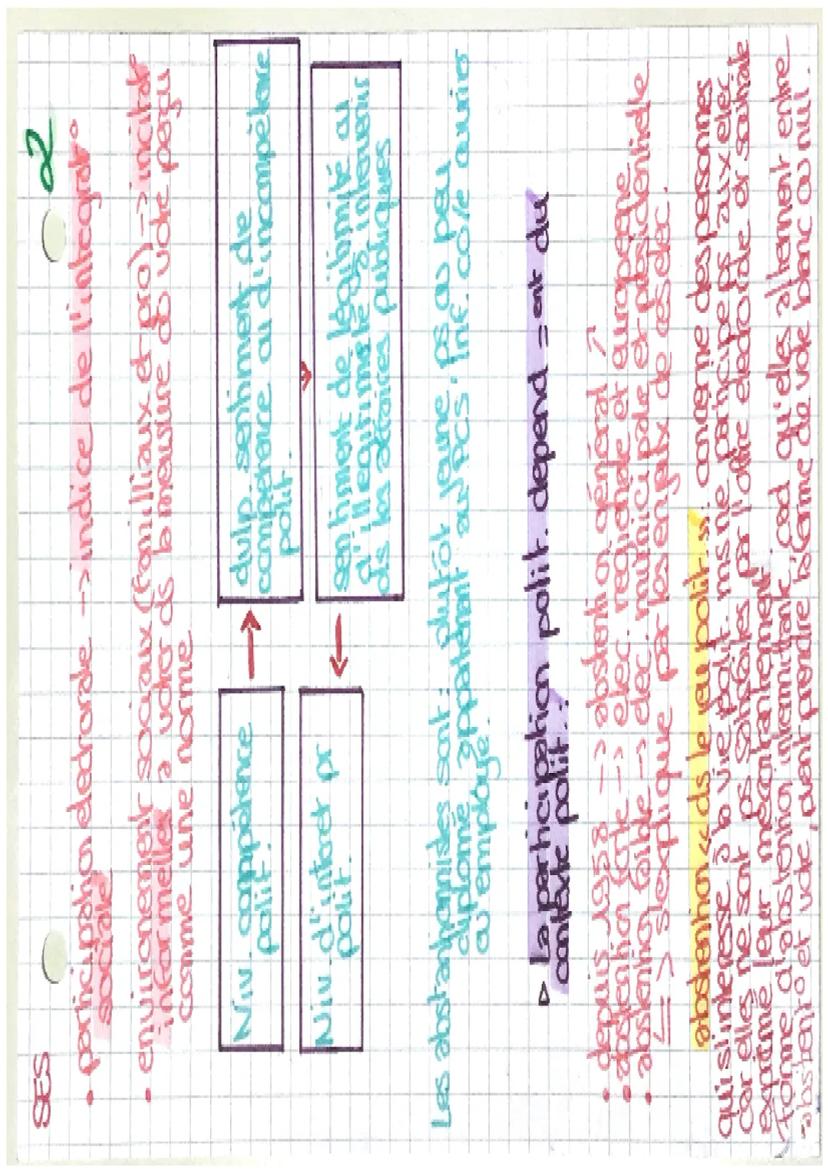 SES
2
• participation électorale -> indice de l'intégrat°
sociale
• environement sociaux (familliaux et pro) -> incitat°
informelles à voter ds la mesure où vote perçu
comme une norme
Niv. compétence
polit.
dvlp sentiment de
compétence ou d'incompétence
polit.
Niv. d'interet pr
polit.
sentiment de légitimité ou
d'illégitimité à intervenir
ds les affaires publiques
Les abstentionnistes sont: plutôt jeune, ps ou peu
diplomé, appartenait au PCS. Inf. côté ouvrier
ou employé.
▷ La participation polit. depend = ent du
contexte polit.:
• depuis 1958 -> abstention général ↗
• abstention forte -> elec. régionale et européene
• abstention faible -> elec. municipale et présidentielle
<=> s'explique par les enjeux de ces elec.
abstention « ds le jeu polit. »: concerne des personnes
qui s'interesse à la vie polit. ms ne participe ps aux elec
car elles ne sont ps satisfaites par l'offre électorale et souhaite
exprimé leur mécontentement
forme d'abstention intermittante, cad qu'elles alternent entre
abstent° et vote, peut prendre la forme de vote blanc ou nul.